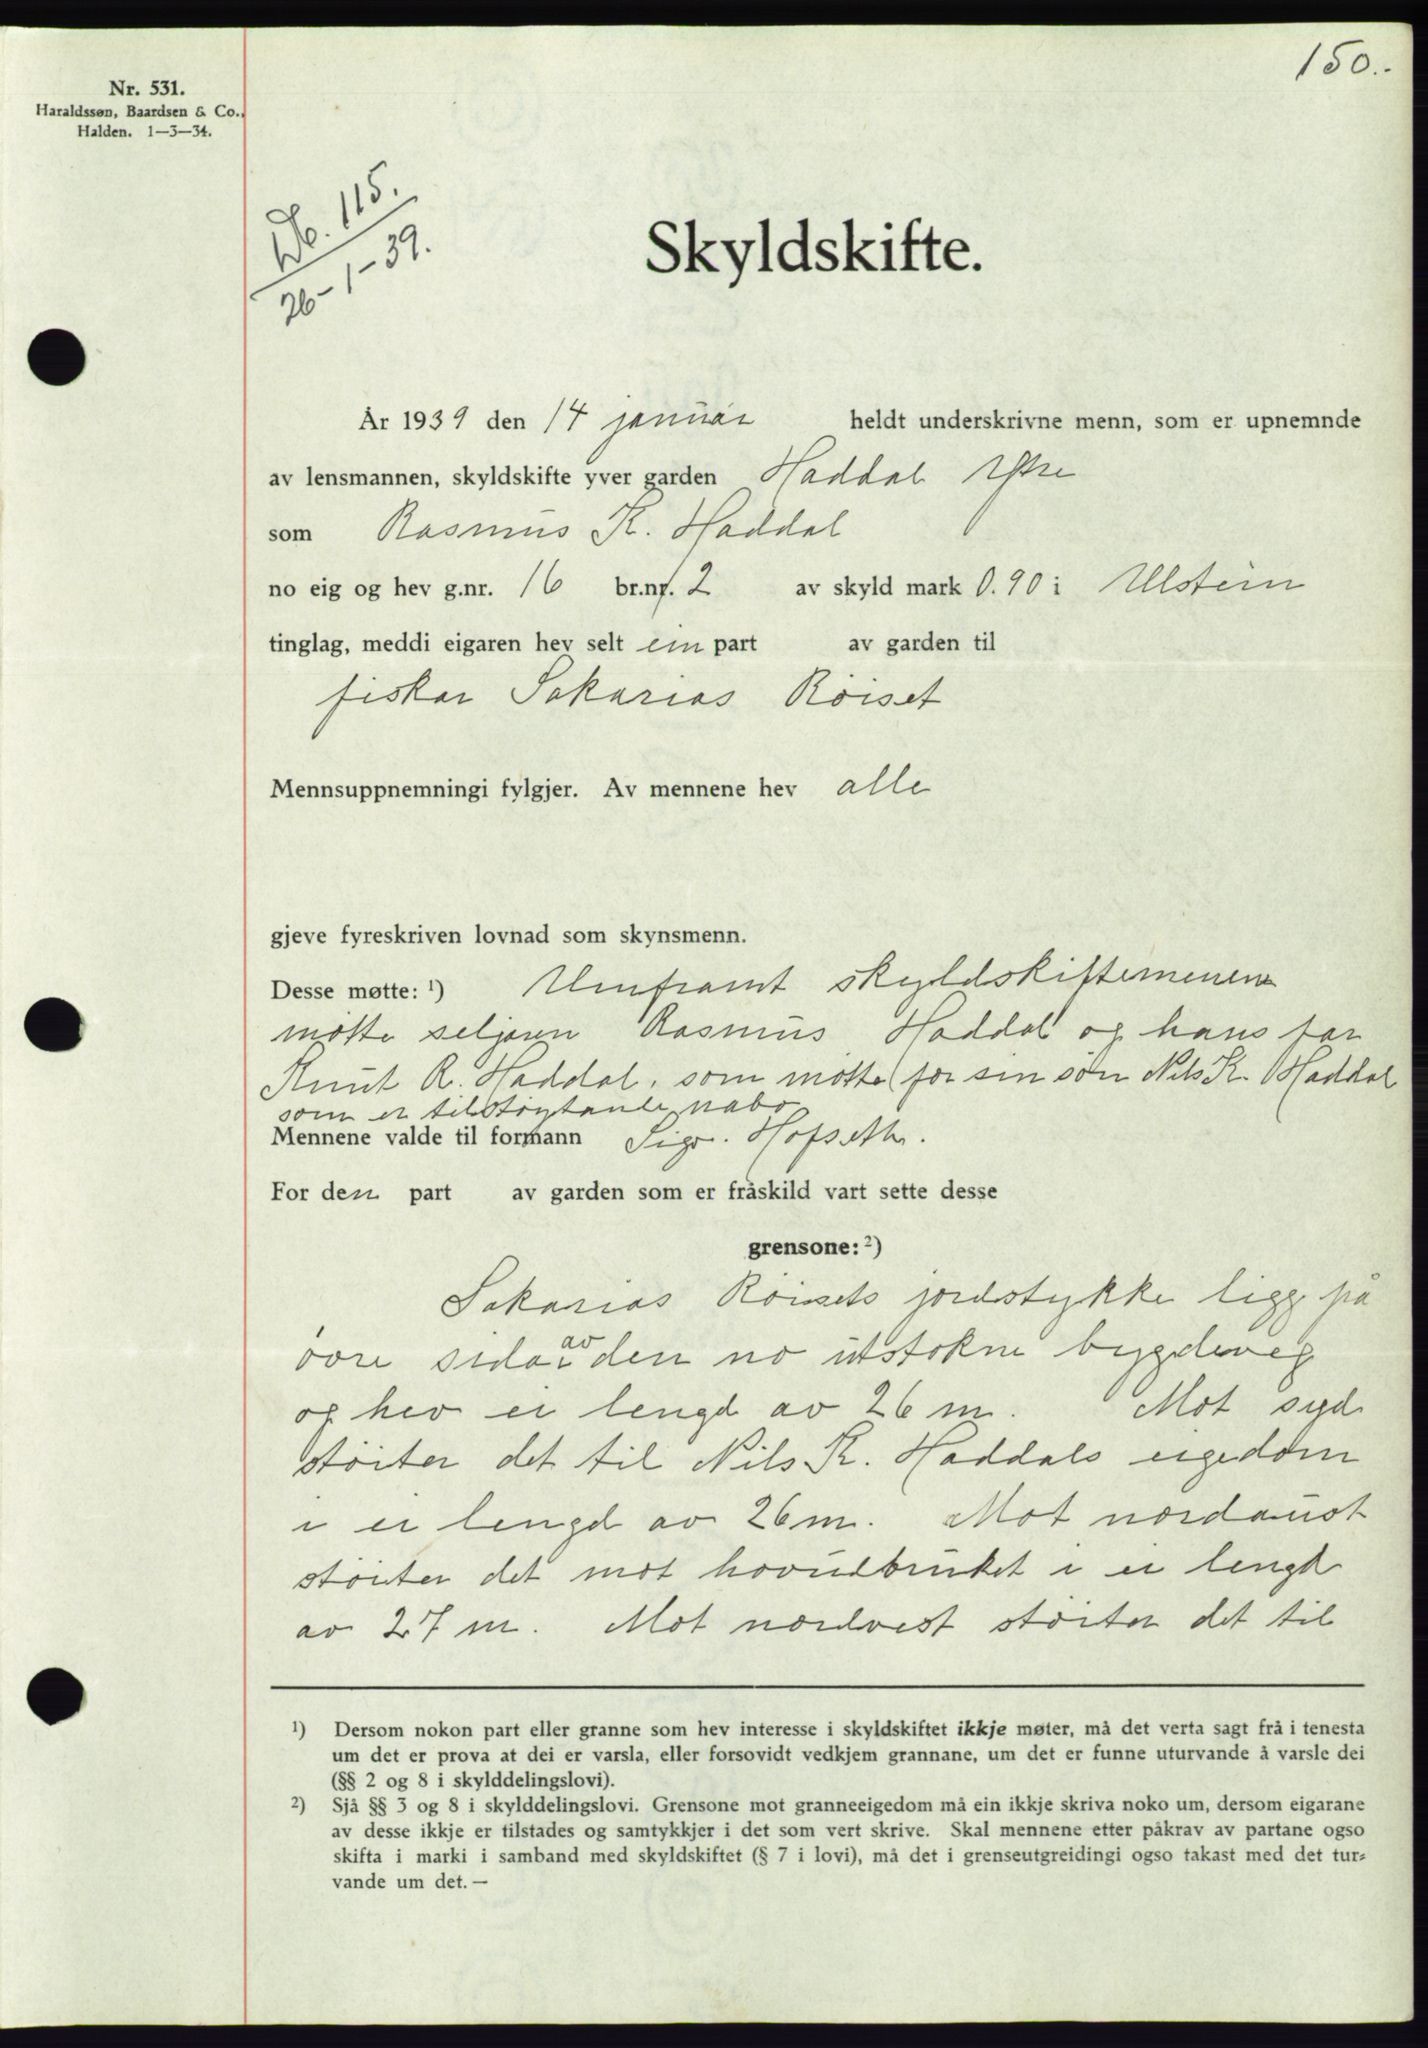 150.
Nr. 531.
Haraldssøn, Baardsen & Co.,
Halden. 1—3—34.
Db. 115.
26-1-39.
Skyldskifte.
År 1939 den 14 januar heldt underskrivne menn, som er upnemnde
av lensmannen, skyldskifte yver garden Haddal Ytre
som Rasmus K. Haddal
no eig og hev g.nr. 16 br.nr. 2 av skyld mark 0.90 i Ulstein
tinglag, meddi eigaren hev selt ein part av garden til
fiskar Sakarias Röiset
Mennsuppnemningi fylgjer. Av mennene hev alle
gjeve fyreskriven lovnad som skynsmenn.
Desse møtte: ¹) Umframt skyldskiftemenene
mötte seljaren Rasmus Haddal og hans far
Knut R. Haddal, som mötte for sin sön Nils K. Haddal
som er tilstöytande nabo
Mennene valde til formann Sigr. Hofseth.
For den part av garden som er fråskild vart sette desse
grensone: ²)
Sakarias Röisets jordstykke ligg på
övre sida av den no utstokne bygdeveg
og hev ei lengd av 26 m. Mot syd
stöiter det til Nils K. Haddals eigedom
i ei lengd av 26 m. Mot nordaust
stöiter det mot hovudbruket i ei lengd
av 27 m. Mot nordvest stöiter det til
¹) Dersom nokon part eller granne som hev interesse i skyldskiftet ikkje møter, må det verta sagt frå i tenesta
um det er prova at dei er varsla, eller forsovidt vedkjem grannane, um det er funne uturvande å varsle dei
(§§ 2 og 8 i skylddelingslovi).
²) Sjå §§ 3 og 8 i skylddelingslovi. Grensone mot granneeigedom må ein ikkje skriva noko um, dersom eigarane
av desse ikkje er tilstades og samtykkjer i det som vert skrive. Skal mennene etter påkrav av partane ogso
skifta i marki i samband med skyldskiftet (§ 7 i lovi), må det i grenseutgreidingi ogso takast med det tur-
vande um det. —